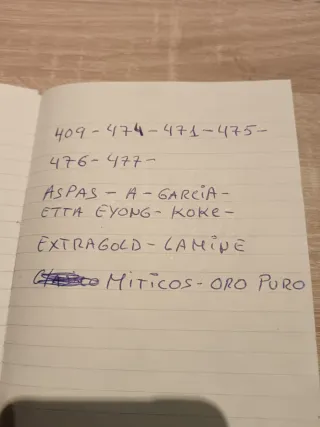 409-474-471-475-
476-477-
ASPAS - A-GARCIA-
ETTA EYONG-KOKE-
EXTRAGOLD-LAMINE
MITICOS-ORO PURO